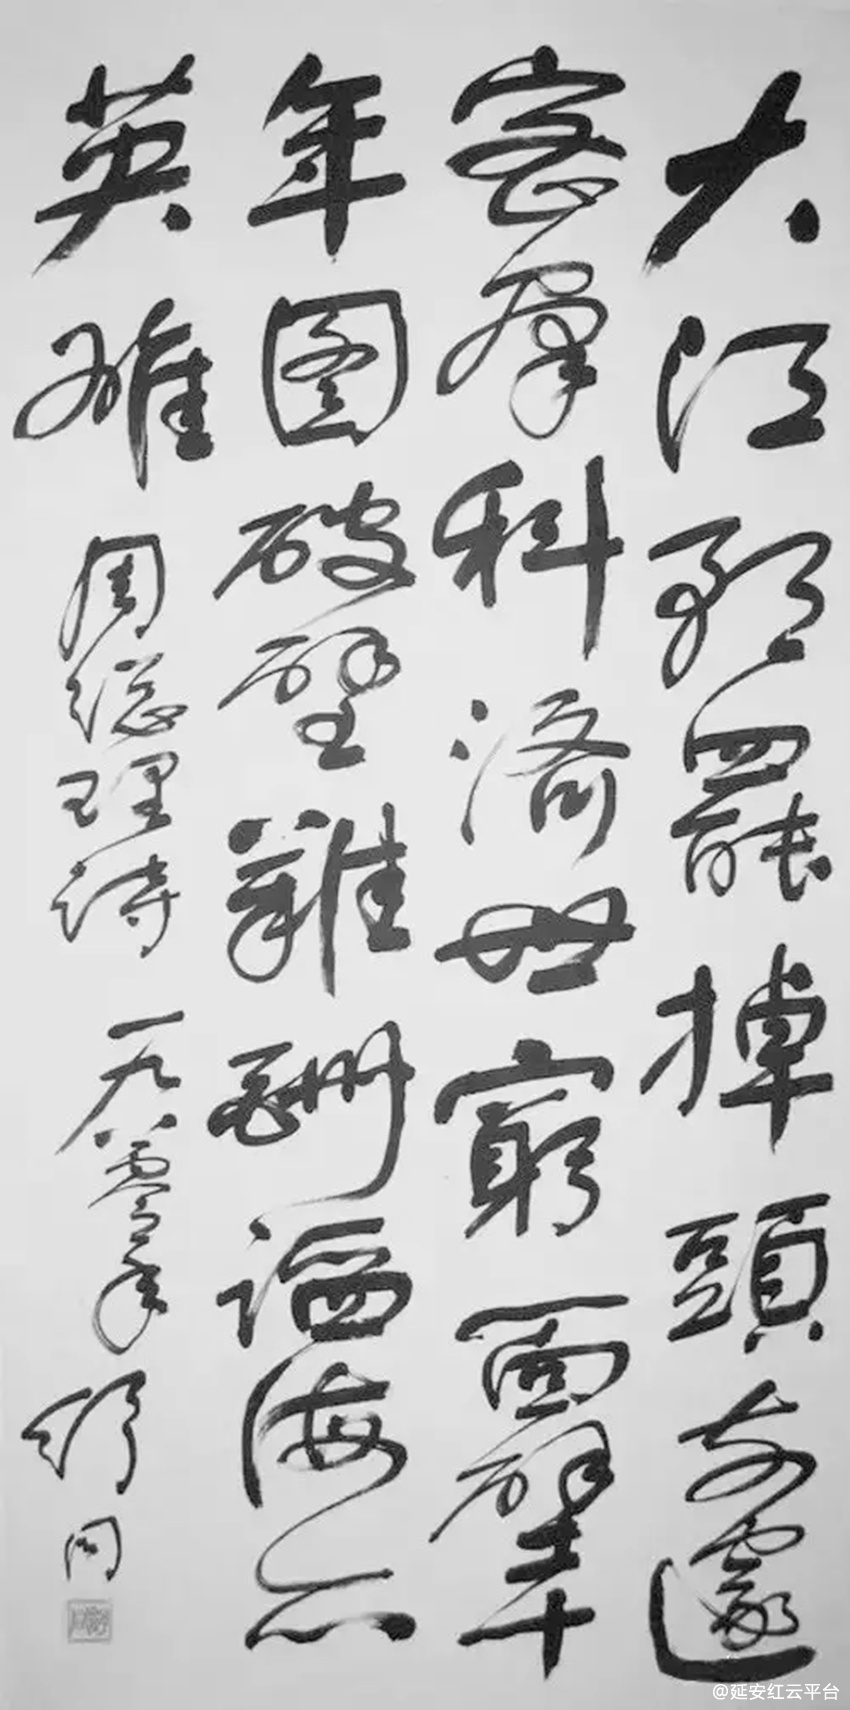 大江歌罷掉頭东邃
密群科济世窮面壁十
年图破壁難酬蹈海亦
英雄 周總理詩 一九八零年 舒同
@延安红云平台